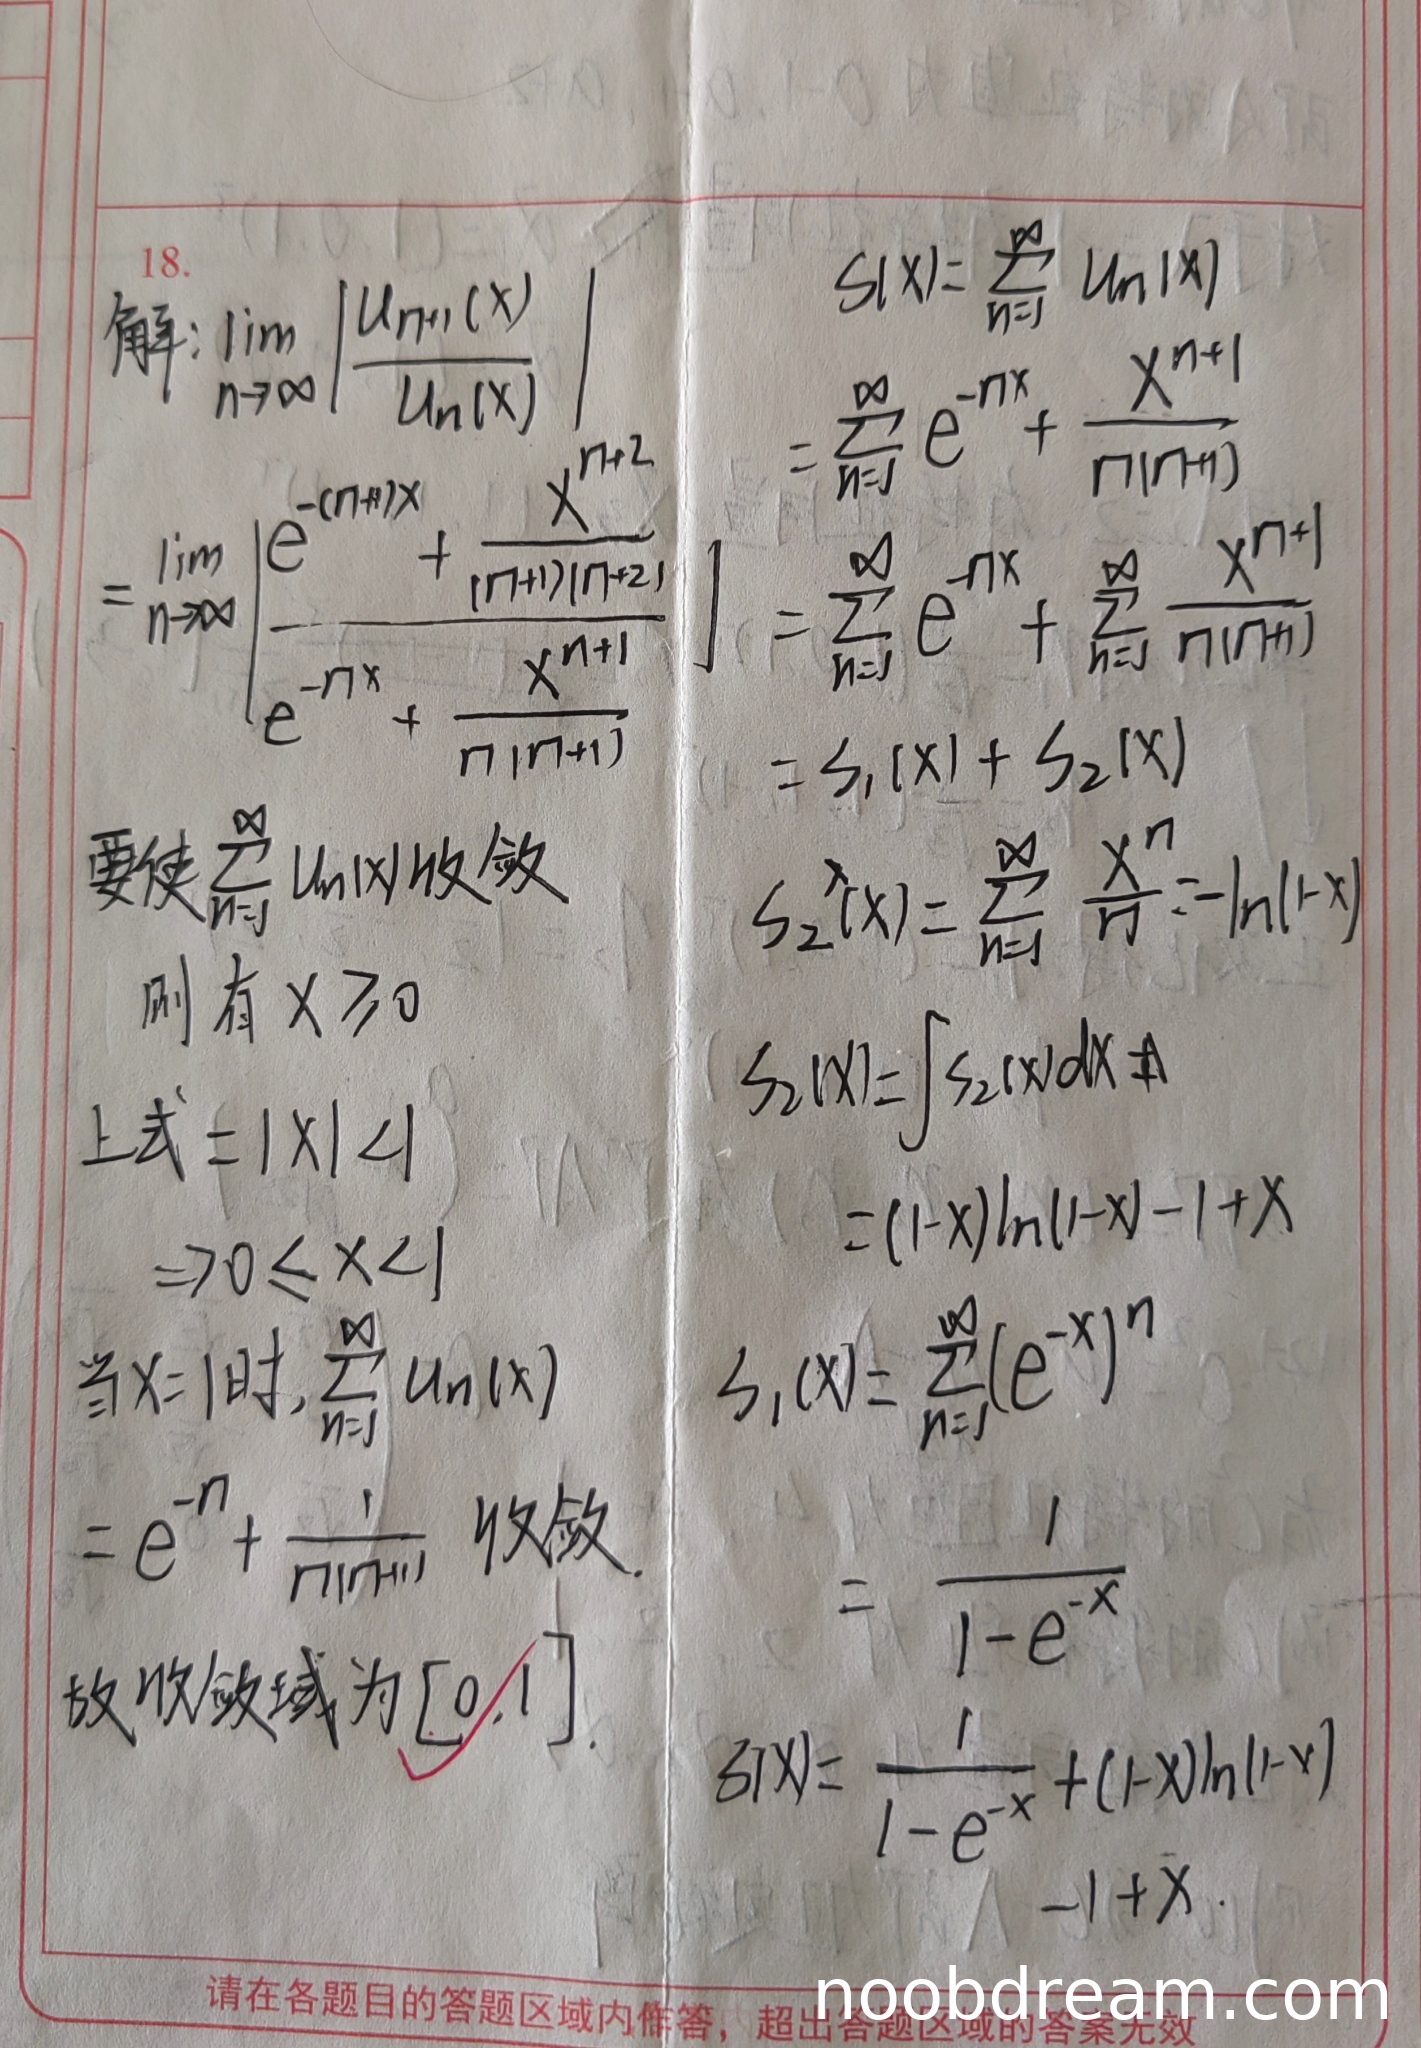 18.
解: lim_{n→∞} | u_{n+1}(x) / u_n(x) |
= lim_{n→∞} | (e^{-(n+1)x} + x^{n+2}/((n+1)(n+2))) / (e^{-nx} + x^{n+1}/(n(n+1))) |
要使 ∑_{n=1}^{∞} u_n(x) 收敛
则有 x ≥ 0
上式 = |x| < 1
=> 0 ≤ x < 1
当 x=1 时, ∑_{n=1}^{∞} u_n(x)
= e^{-n} + 1/(n(n+1)) 收敛.
故收敛域为 [0,1].
S(x) = ∑_{n=1}^{∞} u_n(x)
= ∑_{n=1}^{∞} e^{-nx} + x^{n+1}/(n(n+1))
= ∑_{n=1}^{∞} e^{-nx} + ∑_{n=1}^{∞} x^{n+1}/(n(n+1))
= S_1(x) + S_2(x)
S_2(x) = ∑_{n=1}^{∞} x^n/n = -ln(1-x)
S_2(x) = ∫ S_2(x) dx
= (1-x)ln(1-x) - 1 + x
S_1(x) = ∑_{n=1}^{∞} (e^{-x})^n
= 1/(1-e^{-x})
S(x) = 1/(1-e^{-x}) + (1-x)ln(1-x)
-1+x.
请在各题目的答题区域内作答，超出答题区域的答案无效
noobdream.com